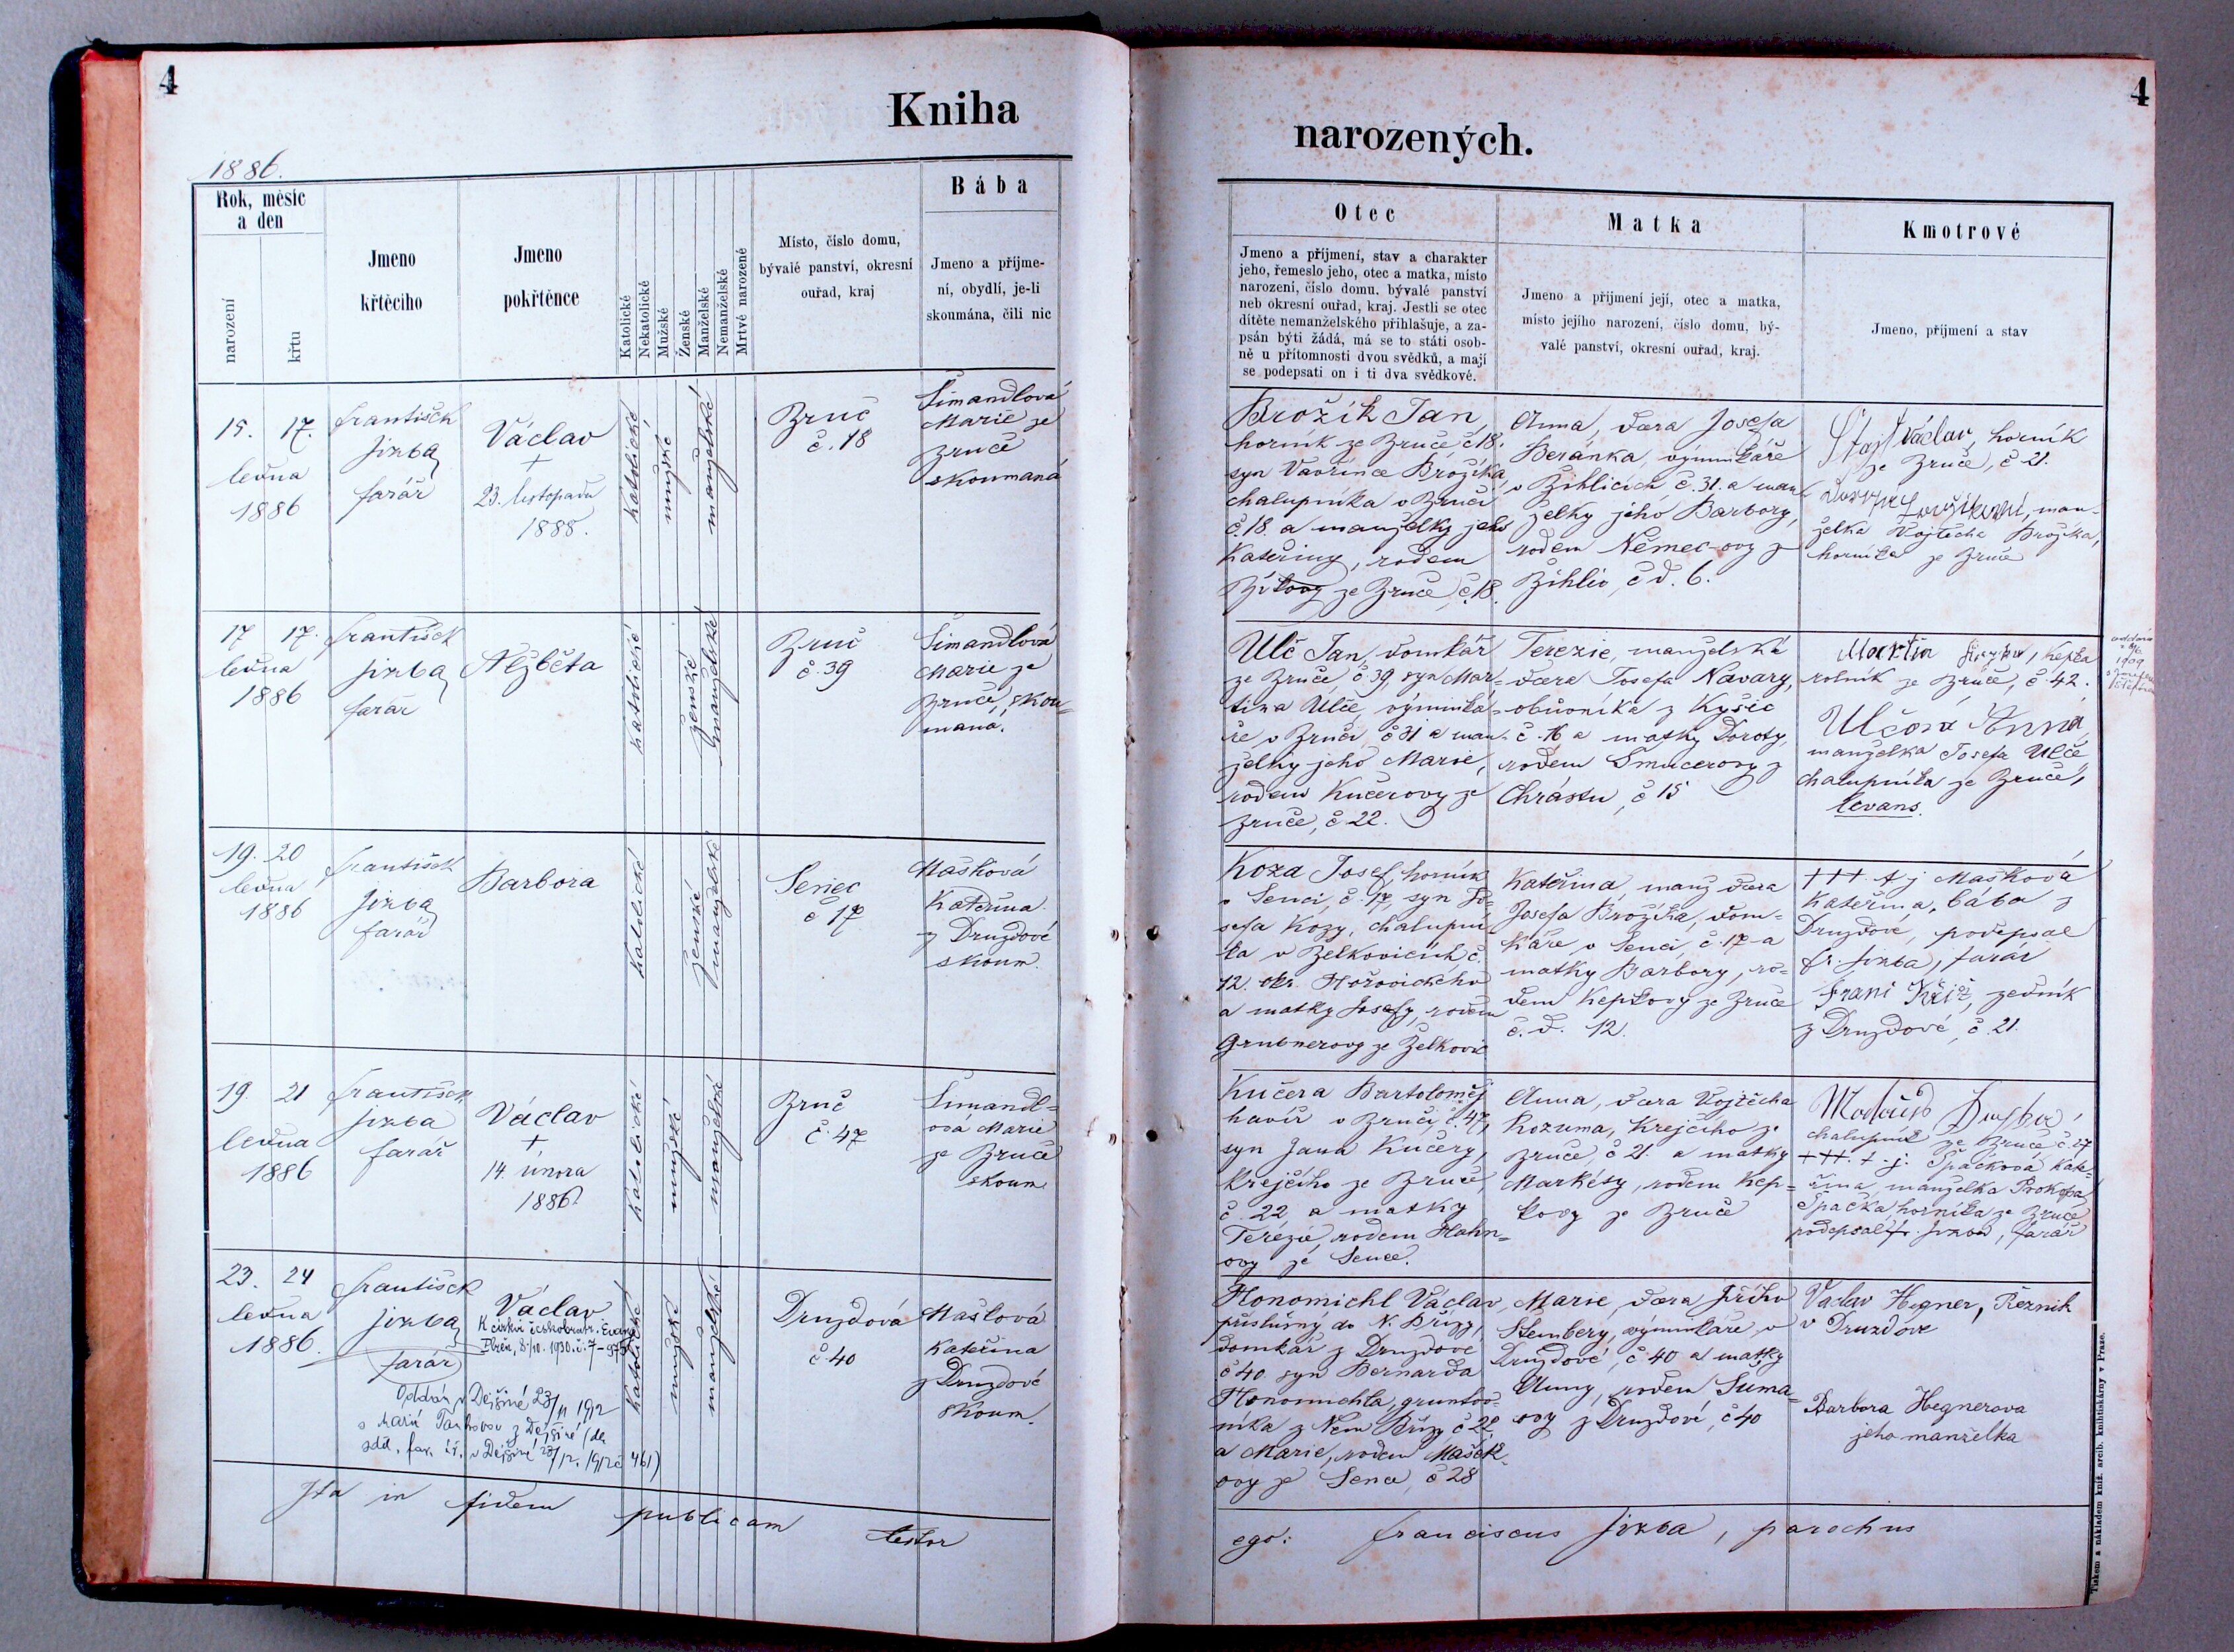 4
Kniha
1886.
Rok, měsíc
a den
narození
křtu
Jmeno
křtěcího
Jmeno
pokřtěnce
Katolické
Nekatolické
Mužské
Ženské
Manželské
Nemanželské
Mrtvé narozené
Místo, číslo domu,
bývalé panství, okresní
ouřad, kraj
Bába
Jmeno a příjme-
ní, obydlí, je-li
skoumána, čili nic
15. 17.
ledna
1886
František
Jirba
farář
Václav
+
23. listopadu
1888.
katolické
mužské
manželské
Zruč
č. 18
Šimandlová
Marie ze
Zruče
skoumaná
17 17.
ledna
1886
František
Jirba
farář
Alžběta
katolické
ženské
manželské
Zruč
č. 39
Šimandlová
Marie ze
Zruče, skou-
maná.
19. 20
ledna
1886
František
Jirba
farář
Barbora
katolické
ženské
manželské
Senec
č 17
Mašková
Kateřina
z Druzdové
skoum.
19. 21
ledna
1886
František
Jirba
farář
Václav
+
14. února
1886
katolické
mužské
manželské
Zruč
č. 47
Šimandl-
ová Marie
ze Zruče
skoum.
23. 24
ledna
1886.
František
Jirba
farář
Václav
K církvi českobratr. Evang.
Plzeň, 8./10. 1930. č. 7-975
Oddán v Dejšině 23/11 1912
s Marií z Dejšiné (dle
sděl. far. úř. v Dejšině 28/12. 1912 č 461)
katolické
mužské
manželské
Druzdová
č. 40
Mašková
Kateřina
z Druzdové
skoum.
Ita in fidem publicam testor
4
narozených.
Otec
Jmeno a příjmení, stav a charakter
jeho, řemeslo jeho, otec a matka, místo
narození, číslo domu, bývalé panství
neb okresní ouřad, kraj. Jestli se otec
dítěte nemanželského přihlašuje, a za-
psán býti žádá, má se to státi osob-
ně u přítomnosti dvou svědků, a mají
se podepsati on i ti dva svědkové.
Matka
Jmeno a příjmení její, otec a matka,
místo jejího narození, číslo domu, bý-
valé panství, okresní ouřad, kraj.
Kmotrové
Jmeno, příjmení a stav
Brožík Jan,
horník ze Zruče, č 18.
syn Vavřince Brožíka,
chalupníka v Zruči
č. 18. a manželky jeho
Kateřiny, rodem
ze Zruče, č. 18.
Anna, dcera Josefa
Beránka, výminkáře
v Žihlicích č. 31. a man-
želky jeho Barbory,
rodem Němec-ovy z
Žihlic, č. d. 6.
Václav, horník
ze Zruče, č 21.
man-
želka Vojtěcha Brožíka,
horníka ze Zruče
Ulč Jan, domkář
ze Zruče č. 39, syn Mar-
tina Ulče, výminká-
ře v Zruči, č 31 a man-
želky jeho Marie,
rodem Kučerovy ze
Zruče, č 22.
Terezie, manželská
dcera Josefa Navary,
obuvníka z Kyšic
č. 16 a matky Doroty,
rodem Smucerovy z
Chrástu, č 15
Martin Kepka
rolník ze Zruče, č. 42.
Ulčová Anna
manželka Josefa Ulče,
chalupníka ze Zruče,
levans.
1909
Koza Josef, horník
v Senci, č. 17, syn Jo-
sefa Kozy, chalupní-
ka v Želkovicích č.
12. okr. Hořovického
a matky Josefy, rodem
Grubnerovy ze Želkovic
Kateřina, manž dcera
Josefa Brožíka, dom-
káře v Senci, č. 17 a
matky Barbory, ro-
dem Kepkovy ze Zruče
č. d. 12.
+++ t j Mašková
Kateřina, bába z
Druzdové, podepsal
Fr. Jirba, farář
Franc Kříž, zedník
z Druzdové, č. 21.
Kučera Bartoloměj
havíř v Zruči, č. 47,
syn Jana Kučery,
krejčího ze Zruče,
č. 22 a matky
Terezie, rodem Hahn-
ovy ze Sence.
Anna, dcera Vojtěcha
Kozuma, krejčího ze
Zruče, č 21. a matky
Markéty, rodem Kep-
kovy ze Zruče
chalupník ze Zruče č. 27
+++. t. j. Špačková Kate-
řina, manželka Prokopa
Špačka, horníka ze Zruče
podepsal fr. Jirba, farář
Honomichl Václav,
příslušný do N. Břízy,
domkář z Druzdové
č 40. syn Bernarda
Honomichla, gruntov-
níka z Něm Břízy, č 22
a Marie, rodem Mašek-
ovy ze Sence, č 28
Marie, dcera Jiřího
Stembery, výminkáře v
Druzdové, č 40 a matky
Anny, rodem Suma-
ovy z Druzdové, č 40
Václav Hegner, Řezník
v Druzdove
Barbora Hegnerova
jeho manželka
ego: Franciscus Jirba, parochus
Tiskem a nákladem kníž. arcib. knihtiskárny v Praze.